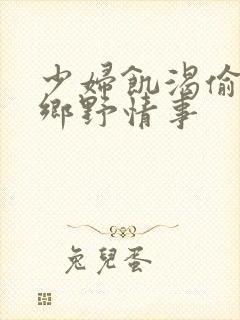 少婦飢渴偷
鄉野情事
兔兒蛋